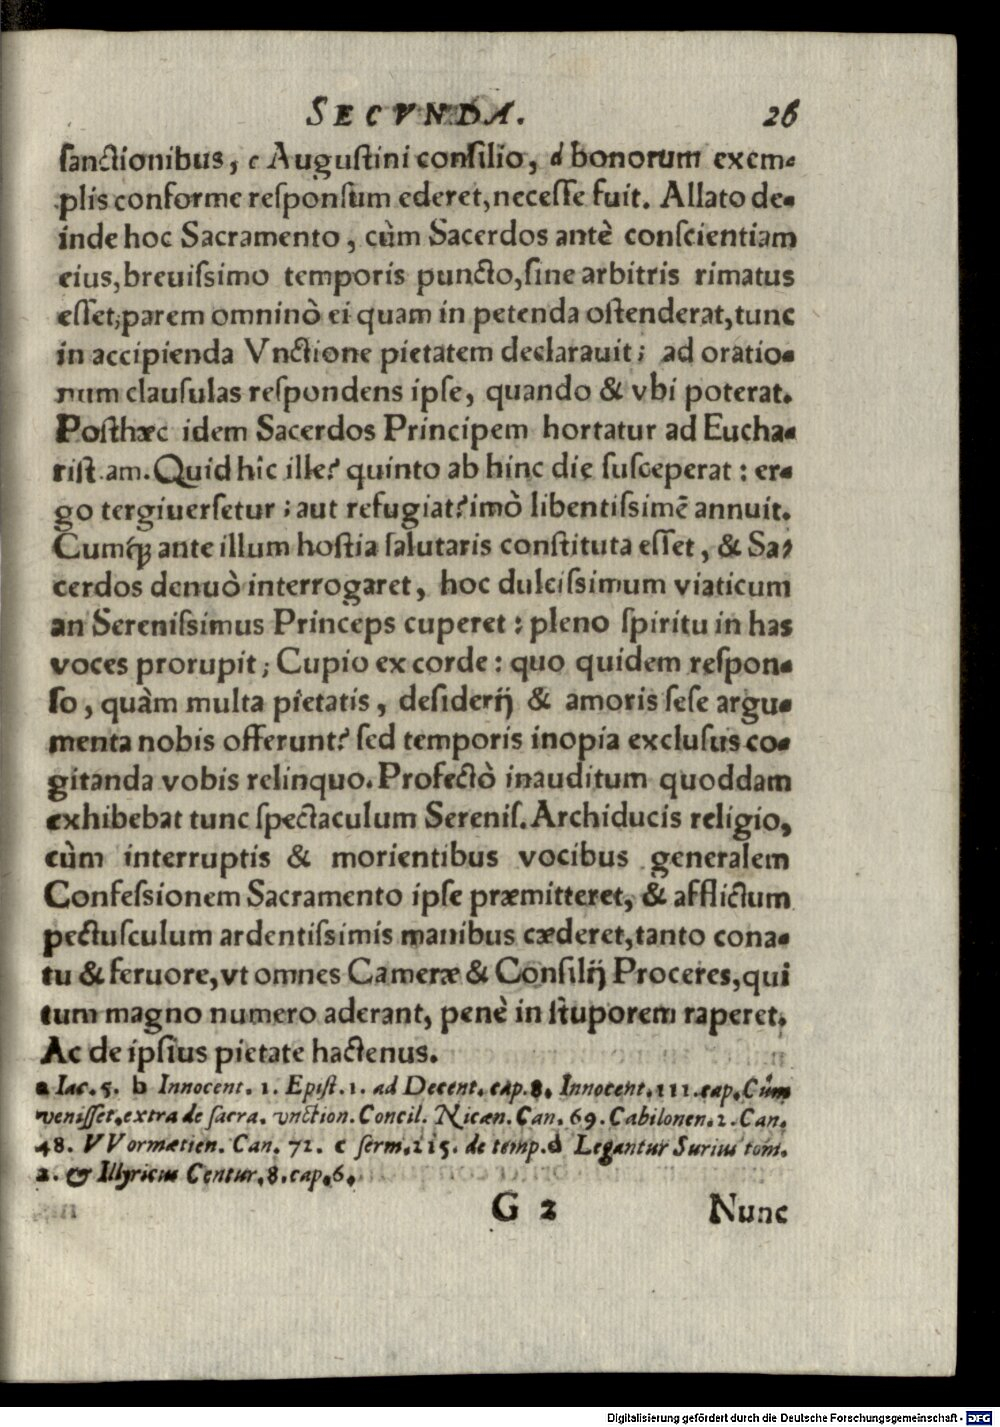 SECVNDA. 26
sanctionibus, c Augustini consilio, d bonorum exem-
plis conforme responsum ederet, necesse fuit. Allato de-
inde hoc Sacramento, cùm Sacerdos antè conscientiam
eius, breuissimo temporis puncto, sine arbitris rimatus
esset; parem omninò ei quam in petenda ostenderat, tunc
in accipienda Vnctione pietatem declarauit; ad oratio-
num clausulas respondens ipse, quando & vbi poterat.
Posthæc idem Sacerdos Principem hortatur ad Eucha-
rist am. Quid hîc ille? quinto ab hinc die susceperat: er-
go tergiuersetur; aut refugiat? imò libentissimē annuit.
Cumq́; ante illum hostia salutaris constituta esset, & Sa-
cerdos denuò interrogaret, hoc dulcissimum viaticum
an Serenissimus Princeps cuperet: pleno spiritu in has
voces prorupit; Cupio ex corde: quo quidem respon-
so, quàm multa pietatis, desiderij & amoris sese argu-
menta nobis offerunt? sed temporis inopia exclusus co-
gitanda vobis relinquo. Profectò inauditum quoddam
exhibebat tunc spectaculum Serenis. Archiducis religio,
cùm interruptis & morientibus vocibus generalem
Confessionem Sacramento ipse præmitteret, & afflictum
pectusculum ardentissimis manibus cæderet, tanto cona-
tu & feruore, vt omnes Cameræ & Consilij Proceres, qui
tum magno numero aderant, penè in stuporem raperet.
Ac de ipsius pietate hactenus.
a Iac. 5. b Innocent. 1. Epist. 1. ad Decent. cap. 8. Innocent. 111. cap. Cùm
venisset. extra de sacra. vnction. Concil. Nicæn. Can. 69. Cabilonen. 2. Can.
48. VVormætien. Can. 72. c serm. 215. de temp. d Legantur Surius tom.
2. & Illyricus Centur. 8. cap. 6.
G 2 Nunc
Digitalisierung gefördert durch die Deutsche Forschungsgemeinschaft - DFG